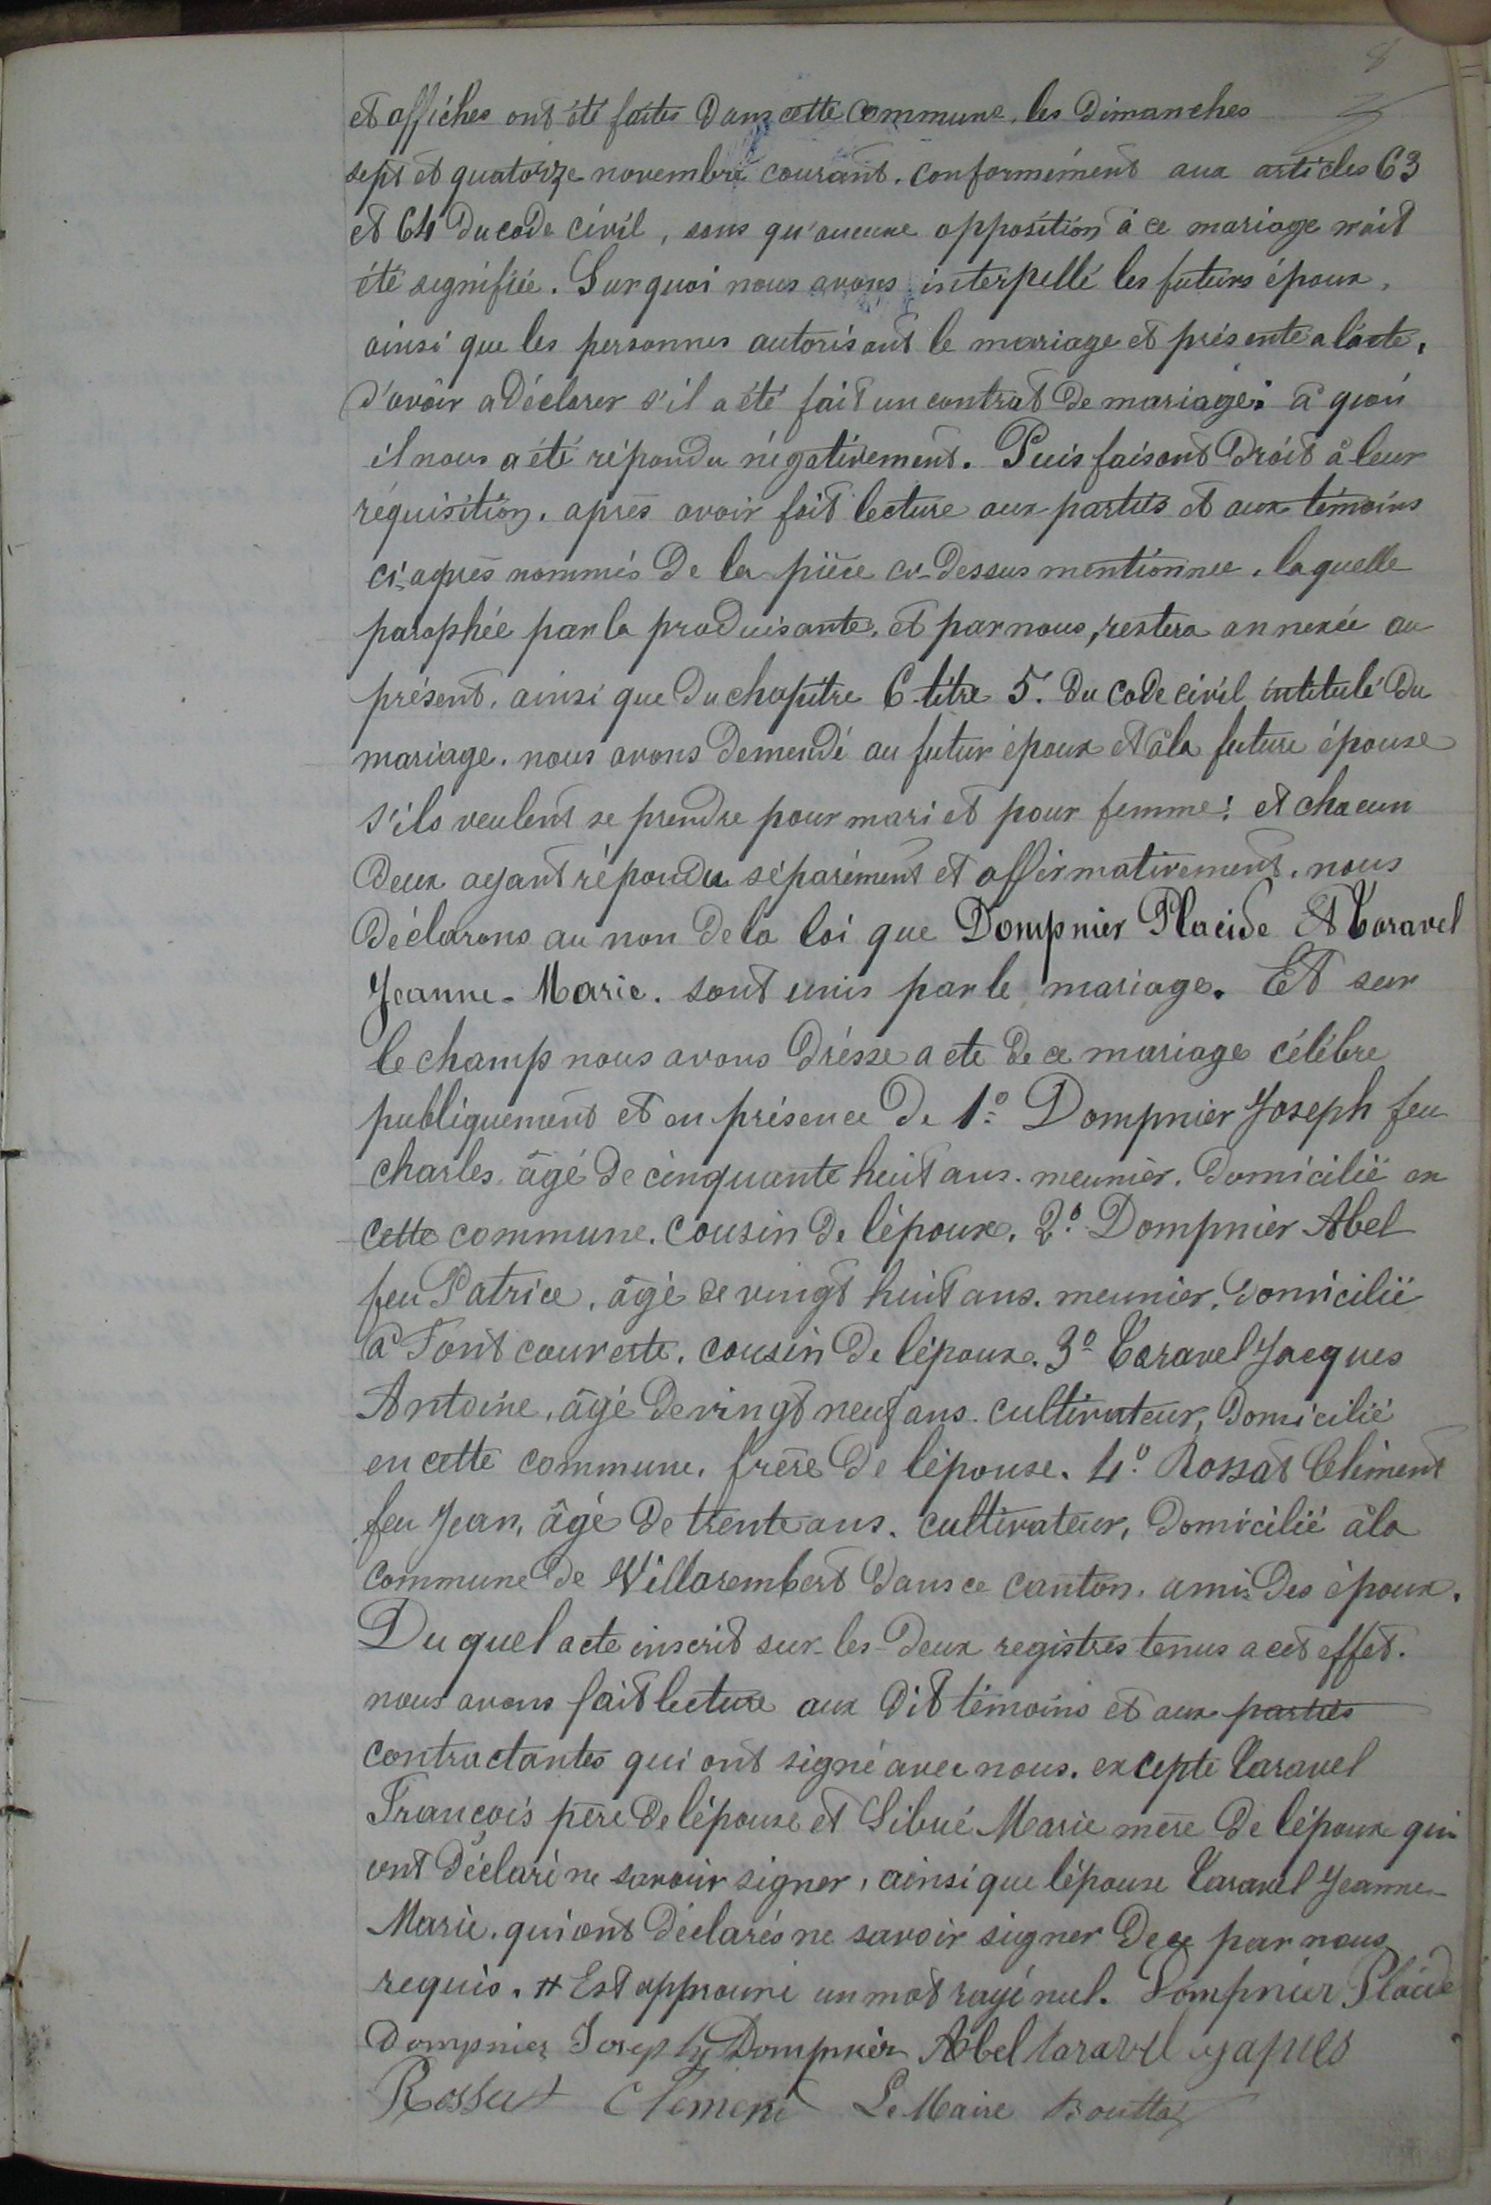 et affiches ont été faites dans cette commune, les dimanches
sept et quatorze novembre courant, conformément aux articles 63
et 64 du code civil, sans qu'aucune opposition à ce mariage n'ait
été signifiée. Sur quoi nous avons interpellé les futurs époux,
ainsi que les personnes autorisant le mariage et présente a l'acte,
d'avoir a déclarer s'il a été fait un contrat de mariage; à quoi
il nous a été répondu négativement. Puis faisant droit à leur
réquisition, après avoir fait lecture aux parties et aux témoins
ci-après nommés de la pièce ci-dessus mentionnée, laquelle
paraphée par la produisante, et par nous, restera annexée au
présent, ainsi que du chapitre 6 titre 5. du code civil intitulé du
mariage, nous avons demendé au futur époux et à la future épouse
s'ils veulent se prendre pour mari et pour femme; et chacun
deux ayant répondu séparément et affirmativement, nous
déclarons au non de la loi que Dompnier Placide Et Taravel
Jeanne-Marie. sont unis par le mariage. Et sur
le champ nous avons drésse acte de ce mariage célébre
publiquement et en présence de 1º Dompnier Joseph feu
charles, âgé de cinquante huit ans. meunier, domicilié en
cette commune, cousin de l'époux. 2º Dompnier Abel
feu Patrice, âgé de vingt huit ans. meunier, domicilié
à Fontcouverte, cousin de l'époux. 3º Taravel Jacques
Antoine, âgé de vingt neuf ans. cultivateur, domicilié
en cette commune, frère de l'épouse. 4º Rossat Clément
feu Jean, âgé de trente ans. cultivateur, domicilié à la
commune de Villarembert dans ce canton, ami des époux.
Du quel acte inscrit sur les deux registres tenus a cet effet.
nous avons fait lecture aux dit témoins et aux parties
contractantes qui ont signé avec nous. excepté Taravel
François père de l'épouse et Sibué Marie mère de l'époux qui
ont déclaré ne savoir signer, ainsi que l'épouse Taravel Jeanne-
Marie. qui ont déclarés ne savoir signer de ce par nous
requis. # Est approuvé un mot rayé nul. Dompnier Placide
Dompnier Joseph Dompnier Abel taravel jaques
Rossat Clement Le Maire Bouttaz